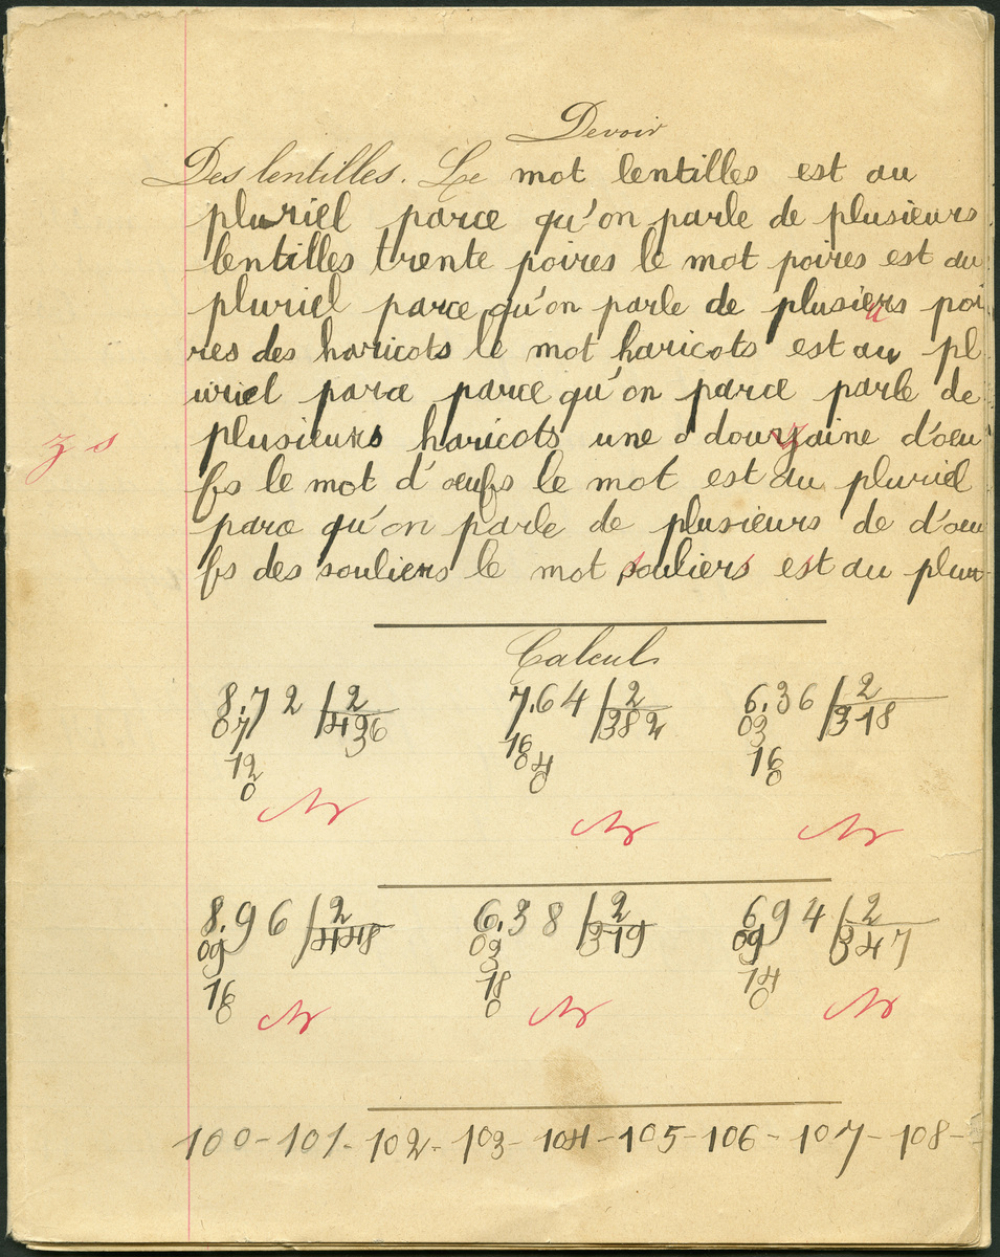 Devoir
Des lentilles. Le mot lentilles est au
pluriel parce qu'on parle de plusieurs
lentilles trente poires le mot poires est au
pluriel parce qu'on parle de plusiers poi
res des haricots le mot haricots est au pl
uriel parce parce qu'on parce parle de
z s plusieurs haricots une d douzaine d'oeu
fs le mot d'oeufs le mot est au pluriel
parce qu'on parle de plusieurs de d'oeu
fs des souliers le mot souliers est au plur
Calculs
8,72 2 7,64 2 6,36 2
07 436 16 382 03 318
12 04 16
0 0 0
8,96 2 6,38 2 694 2
09 448 03 319 09 347
16 18 14
0 0 0
100-101-102-103-104-105-106-107-108-